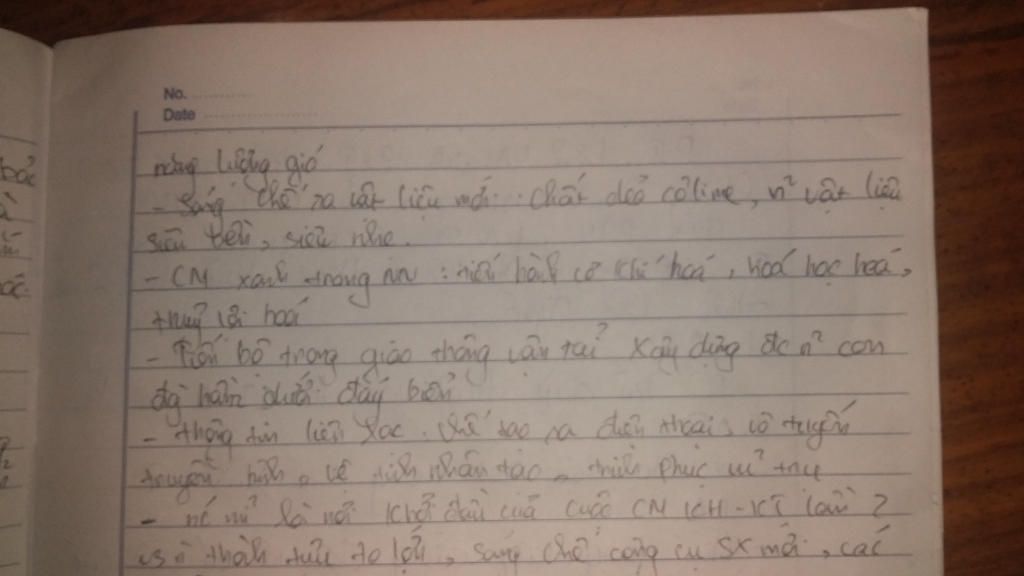 No.
Date
năng lượng gió
- Sáng chế ra vật liệu mới: chất dẻo côlime, n² vật liệu
siêu bền, siêu nhẹ.
- CM xanh trong nn: tiến hành cơ khí hoá, hoá học hoá,
thuỷ lợi hoá
- Tiến bộ trong giao thông vận tải xây dựng đc n² con
đg hầm dưới đáy biển
- thông tin liên lạc. chế tạo ra điện thoại, vô tuyến
truyền hình, vệ tinh nhân tạo, chinh phục vũ trụ
- nc mĩ là nơi khởi đầu của cuộc CM KH-KT lần 2
thành tựu to lớn, sáng chế công cụ SX mới, các